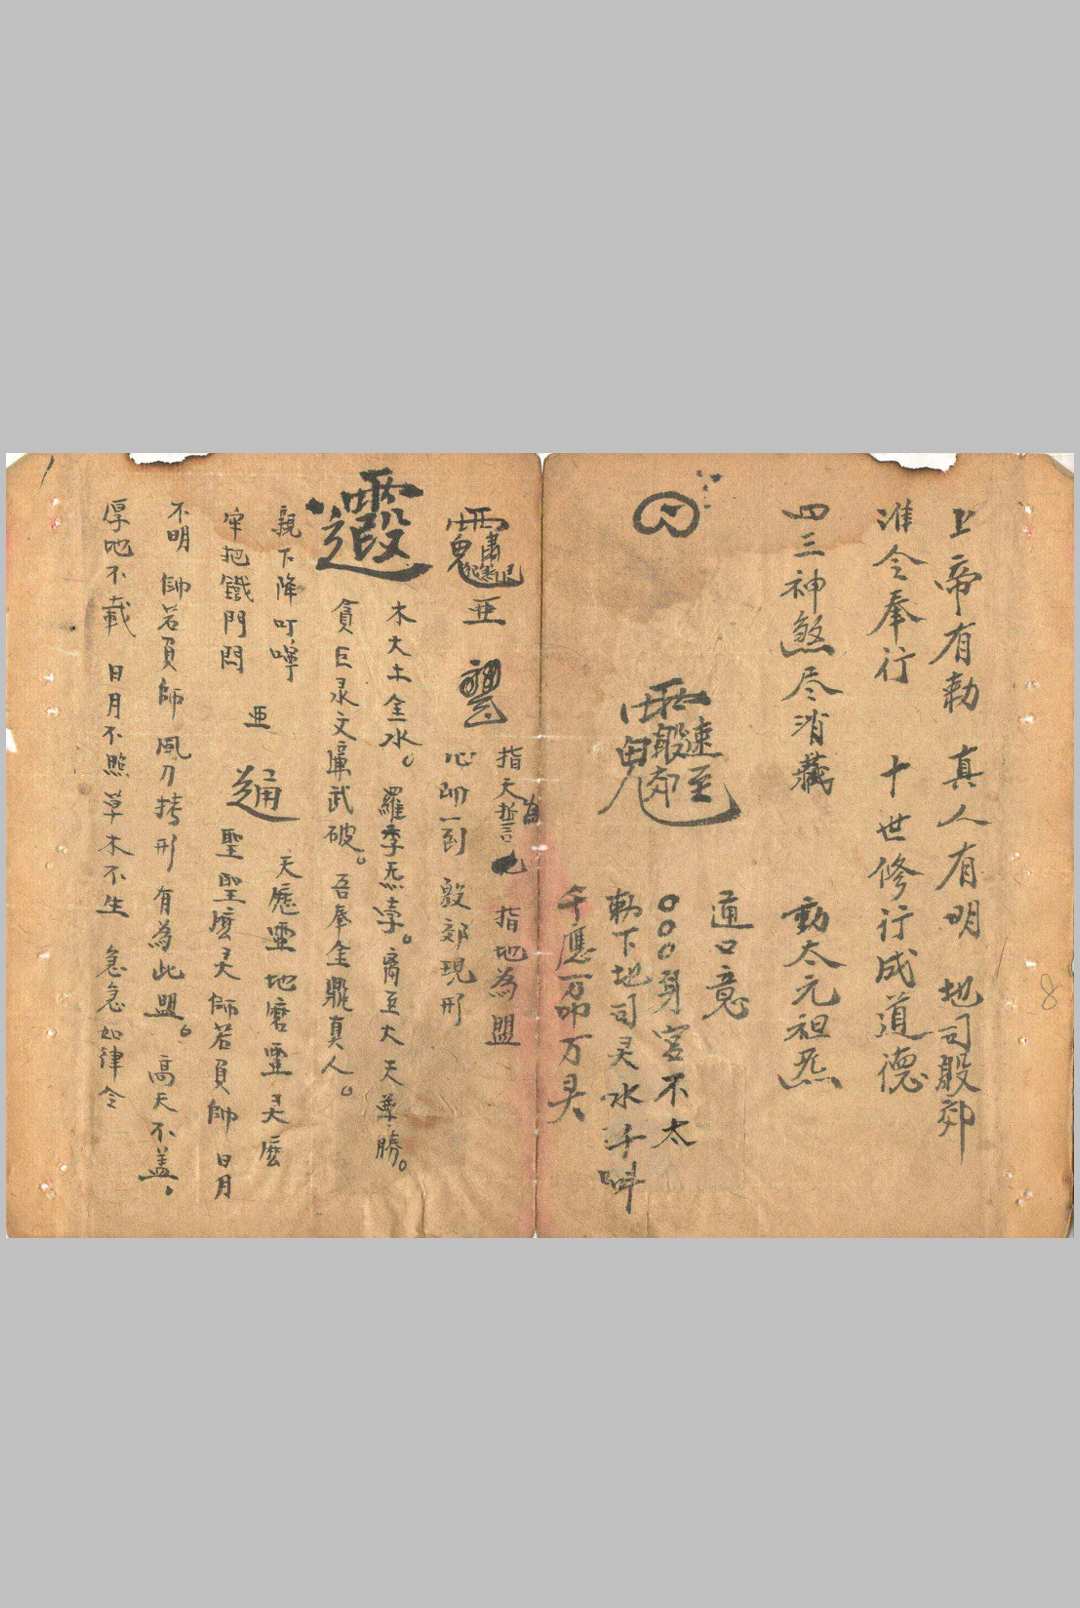 上帝有勅 真人有明 地司殷郊
准令奉行 十世修行成道德
四三神煞尽消藏 動太元祖炁
道口意
〇〇〇身宮不太
勅下地司灵水千叫
千應一万叩万灵
指天為誓 指地為盟
心叩一到 殷郊現形
木火土金水。羅季炁孛。高巨大天尊勝。
貪巨录文廉武破。吾奉金鼎真人。
親下降叮嚀 天應靈地磨靈灵麽
牢把鐵門閂 聖聖麽灵師若負師 日月
不明 師若負師風刀拷形 有為此盟。高天不盖。
厚地不載 日月不照草木不生 急急如律令
8